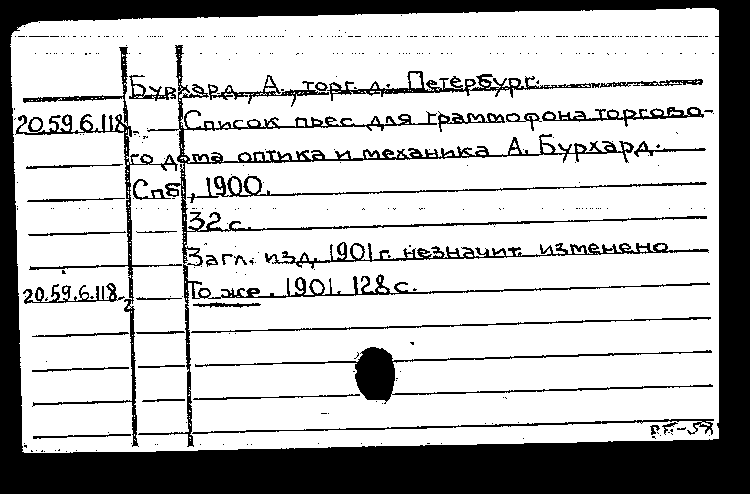 Бурхард, А., торг. д. Петербург.
20.59.6.118-1 Список пьес для граммофона торгово-
го дома оптика и механика А. Бурхард.
Спб, 1900.
32 с.
Загл. изд. 1901 г. незначит. изменено
20.59.6.118-2 То же. 1901. 128 с.